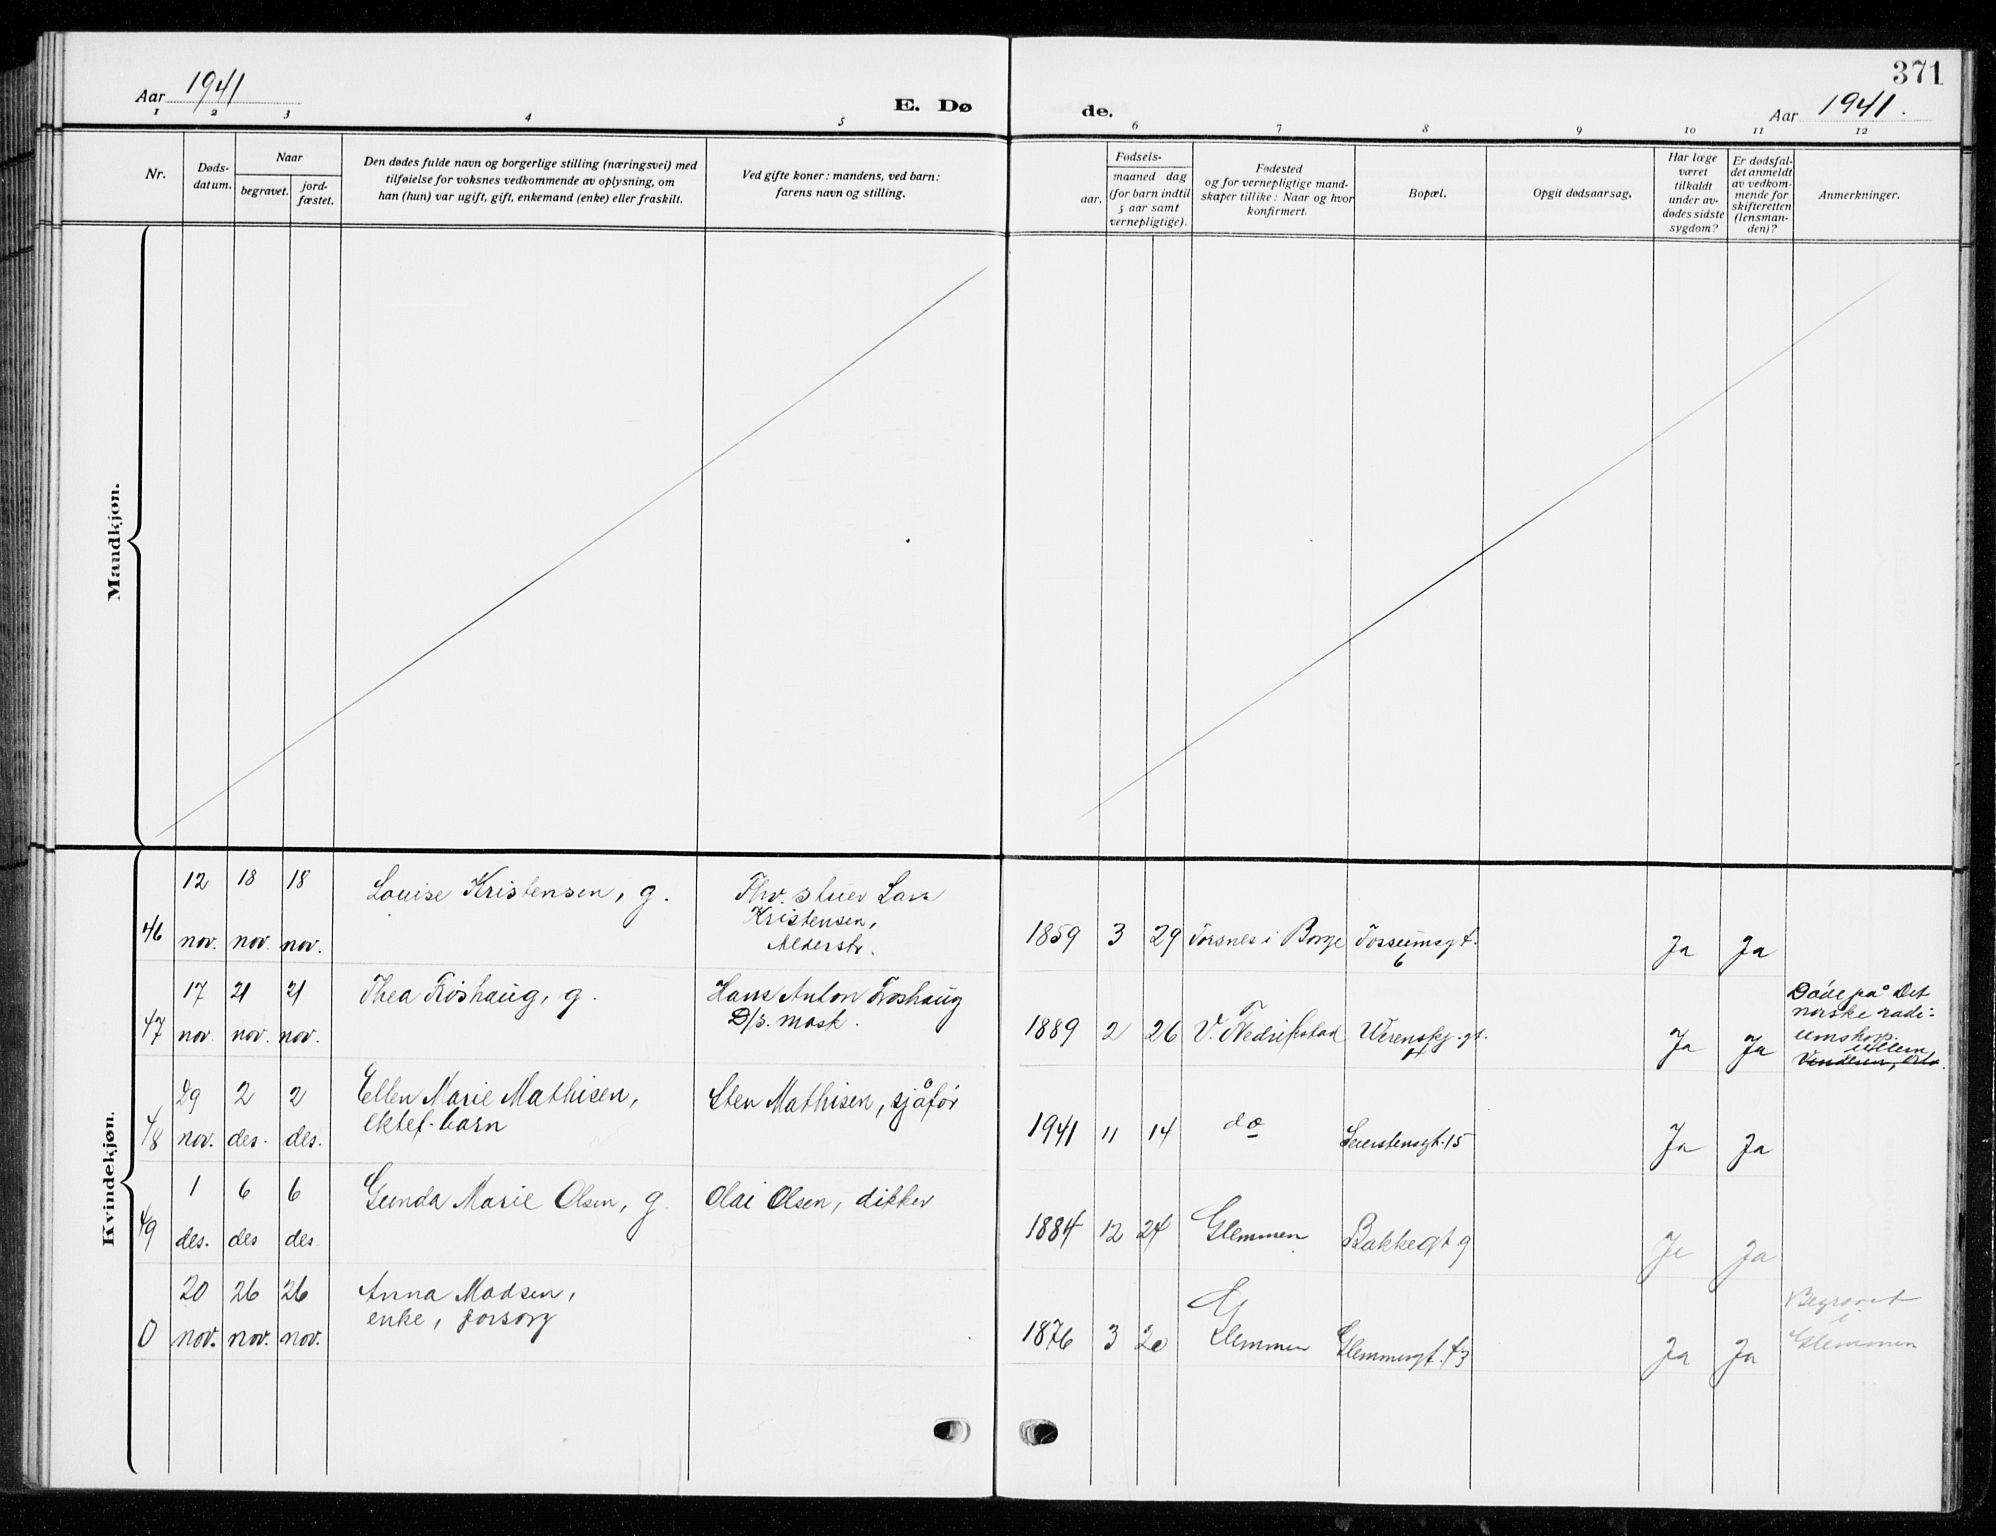 371
Aar 1941
E. Dø
de.
Aar 1941.
1 2 3 4 5 6 7 8 9 10 11 12
Nr.
Døds-
datum.
Naar
begravet.
jord-
fæstet.
Den dødes fulde navn og borgerlige stilling (næringsvei) med
tilføielse for voksnes vedkommende av oplysning, om
han (hun) var ugift, gift, enkemand (enke) eller fraskilt.
Ved gifte koner: mandens, ved barn:
farens navn og stilling.
aar.
Fødsels-
maaned dag
(for barn indtil
5 aar samt
vernepligtige).
Fødested
og for vernepligtige mand-
skaper tillike: Naar og hvor
konfirmert.
Bopæl.
Opgit dødsaarsag.
Har læge
været
tilkaldt
under av-
dødes sidste
sygdom?
Er dødsfal-
det anmeldt
av vedkom-
mende for
skifteretten
(lensman-
den)?
Anmerkninger.
Mandkjøn.
Kvindekjøn.
12 18 18
46 nov. nov. nov.
Louise Kristensen, g.
Fhv. stuer Lars
Kristensen,
Alderstr.
1859 3 29 Torsnes i Borge Fosseumsgt.
6
Ja Ja
17 21 21
47 nov. nov. nov.
Thea Frøshaug, g.
Hans Anton Frøshaug
D/s. mask.
1889 2 26 V. Fredrikstad Werenskj.gt.
4
Ja Ja
Døde på Det
norske radi-
umshosp.
29 2 2
48 nov. des. des.
Ellen Marie Mathisen,
ektef. barn
Sten Mathisen, sjåfør
1941 11 14 do Seierstensgt. 15
Ja Ja
1 6 6
49 des. des des.
Gunda Marie Olsen, g.
Olai Olsen, dikker
1884 12 24 Glemmen Bakkegt 9
Ja Ja
20 26 26
0 nov. nov. nov.
Anna Madsen,
enke, forsorg
1876 3 20 Glemmen Glemmengt. 43
Ja Ja
Begravet
i
Glemmen